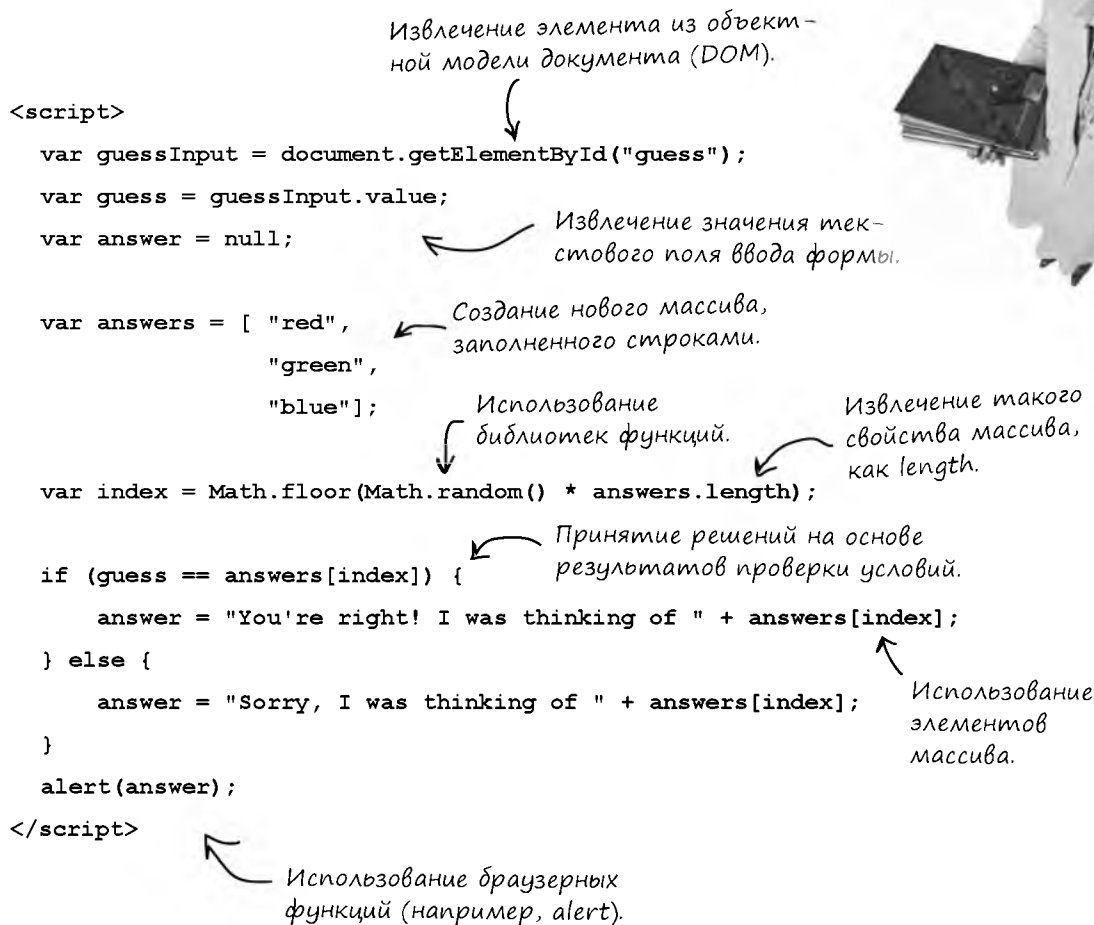 Извлечение элемента из объект-
ной модели документа (DOM).
<script>
var guessInput = document.getElementById("guess");
var guess = guessInput.value;
var answer = null;
Извлечение значения тек-
стового поля ввода формы.
var answers = [ "red",
"green",
"blue"];
Создание нового массива,
заполненного строками.
Использование
библиотек функций.
Извлечение такого
свойства массива,
как length.
var index = Math.floor(Math.random() * answers.length);
Принятие решений на основе
результатов проверки условий.
if (guess == answers[index]) {
answer = "You're right! I was thinking of " + answers[index];
} else {
answer = "Sorry, I was thinking of " + answers[index];
}
Использование
элементов
массива.
alert(answer);
</script>
Использование браузерных
функций (например, alert).